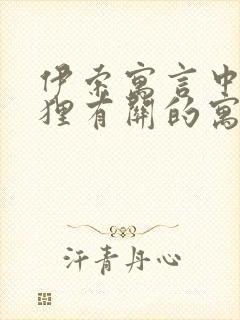 伊索寓言中
狸有關的寓
汗青丹心